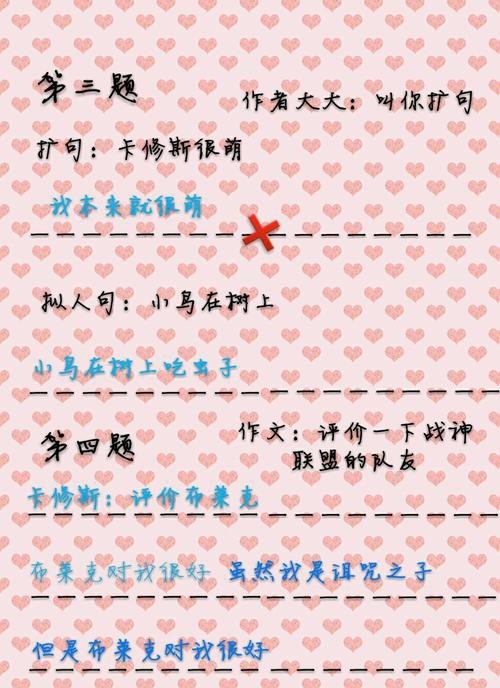 第三题
作者大大：叫你扩句
扩句：卡修斯很萌
我本来就很萌
拟人句：小鸟在树上
小鸟在树上吃虫子
第四题
作文：评价一下战神
联盟的队友
卡修斯：评价布莱克
布莱克对我很好 虽然我是诅咒之子
但是布莱克对我很好